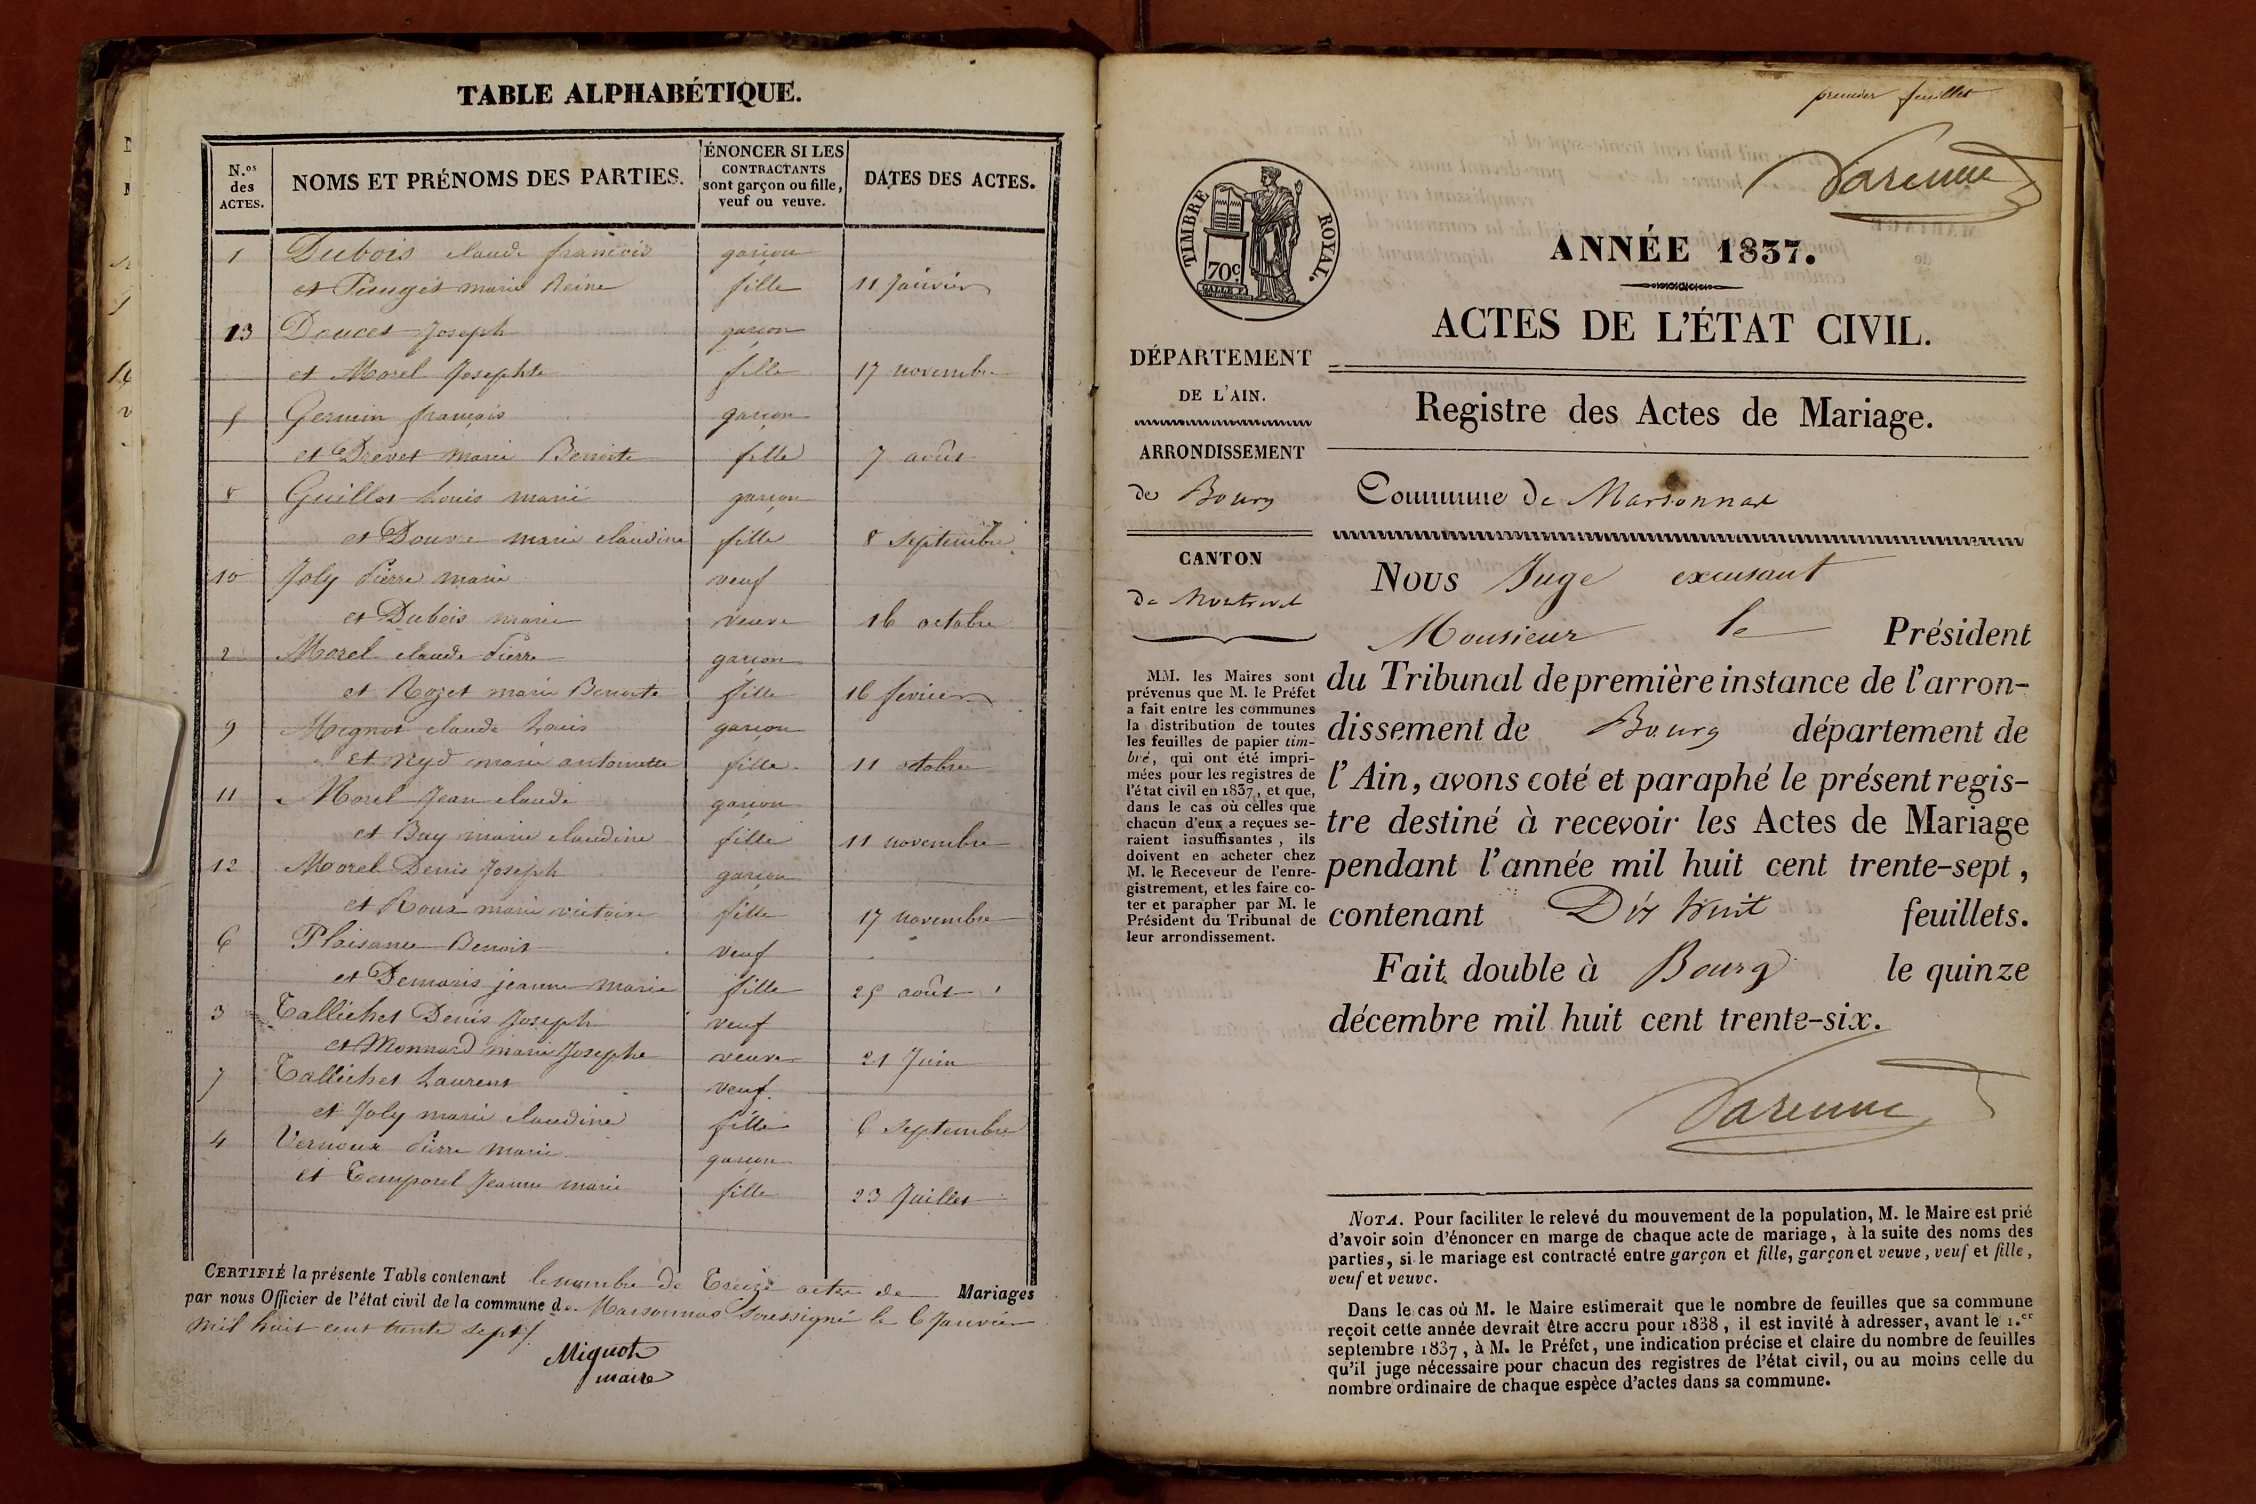 TABLE ALPHABÉTIQUE.
N.os des ACTES.
NOMS ET PRÉNOMS DES PARTIES.
ÉNONCER SI LES CONTRACTANTS sont garçon ou fille, veuf ou veuve.
DATES DES ACTES.
1 Dubois claude francois garcon
et Pauget marie Reine fille 11 Janvier
13 Doucet Joseph garcon
et Morel Josephte fille 17 novembre
5 Germin françois garçon
et Drevet marie Benoite fille 7 août
8 Guillot Louis marie garçon
et Douvre marie claudine fille 8 septembre
10 Joly Pierre marie veuf
et Dubois marie veuve 16 octobre
2 Morel claude Pierre garcon
et Rozet marie Benoite fille 16 fevrier
9 Mignot claude Louis garçon
et Nyd marie antoinette fille 11 octobre
11 Morel Jean claude garcon
et Buy marie claudine fille 11 novembre
12 Morel Denis Joseph garcon
et Roux marie victoire fille 17 novembre
6 Plaisance Benoit veuf
et Demaris jeanne marie fille 25 août
3 Tallichet Denis Joseph veuf
et Monnard marie Josephe veuve 21 Juin
7 Tallichet Laurent veuf
et Joly marie claudine fille 6 septembre
4 Vernoux Pierre marie garçon
et Temporel Jeanne marie fille 23 Juillet
CERTIFIÉ la présente Table contenant le nombre de Treize actes de Mariages
par nous Officier de l'état civil de la commune de Marsonnas soussigné le 6 Janvier
mil huit cent trente sept
Mignot
maire
premier feuillet
Varenne
TIMBRE ROYAL.
70c
ANNÉE 1837.
ACTES DE L'ÉTAT CIVIL.
Registre des Actes de Mariage.
DÉPARTEMENT
DE L'AIN.
ARRONDISSEMENT
de Bourg
CANTON
de Montrevel
MM. les Maires sont
prévenus que M. le Préfet
a fait entre les communes
la distribution de toutes
les feuilles de papier tim-
bré, qui ont été impri-
mées pour les registres de
l'état civil en 1837, et que,
dans le cas où celles que
chacun d'eux a reçues se-
raient insuffisantes, ils
doivent en acheter chez
M. le Receveur de l'enre-
gistrement, et les faire co-
ter et parapher par M. le
Président du Tribunal de
leur arrondissement.
Commune de Marsonnas
Nous Juge excusant
Monsieur le Président
du Tribunal de première instance de l'arron-
dissement de Bourg département de
l'Ain, avons coté et paraphé le présent regis-
tre destiné à recevoir les Actes de Mariage
pendant l'année mil huit cent trente-sept,
contenant Dix huit feuillets.
Fait double à Bourg le quinze
décembre mil huit cent trente-six.
Varenne
NOTA. Pour faciliter le relevé du mouvement de la population, M. le Maire est prié
d'avoir soin d'énoncer en marge de chaque acte de mariage, à la suite des noms des
parties, si le mariage est contracté entre garçon et fille, garçon et veuve, veuf et fille,
veuf et veuve.
Dans le cas où M. le Maire estimerait que le nombre de feuilles que sa commune
reçoit cette année devrait être accru pour 1838, il est invité à adresser, avant le 1.er
septembre 1837, à M. le Préfet, une indication précise et claire du nombre de feuilles
qu'il juge nécessaire pour chacun des registres de l'état civil, ou au moins celle du
nombre ordinaire de chaque espèce d'actes dans sa commune.